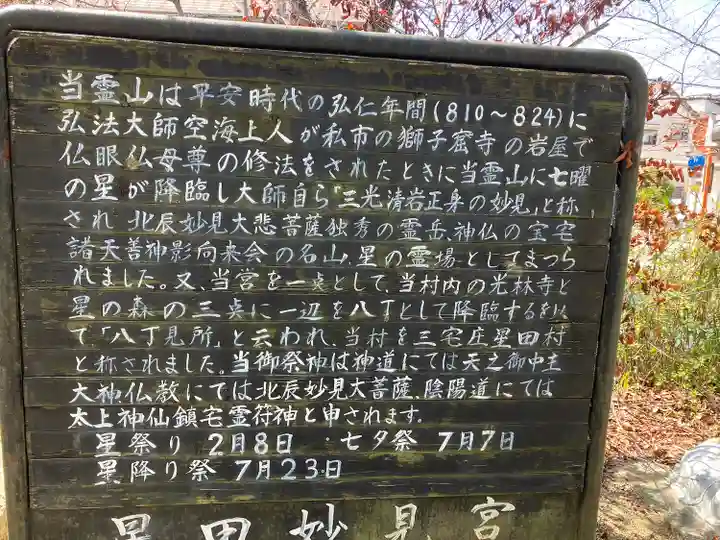 当霊山は平安時代の弘仁年間(810～824)に
弘法大師空海上人が私市の獅子窟寺の岩屋で
仏眼仏母尊の修法をされたときに当霊山に七曜
の星が降臨し大師自ら｢三光清岩正身の妙見｣と称
され 北辰妙見大悲菩薩独秀の霊岳､神仏の宝宅
諸天善神影向来会の名山､星の霊場としてまつら
れました。又､当宮を一点として､当村内の光林寺と
星の森の三点に一辺を八丁として降臨するを以
て｢八丁見所｣と云われ､当村を三宅庄星田村
と称されました。当御祭神は神道にては天之御中主
大神仏教にては北辰妙見大菩薩､陰陽道にては
太上神仙鎮宅霊符神と申されます。
星祭り 2月8日 ・七夕祭 7月7日
星降り祭 7月23日
星田妙見宮